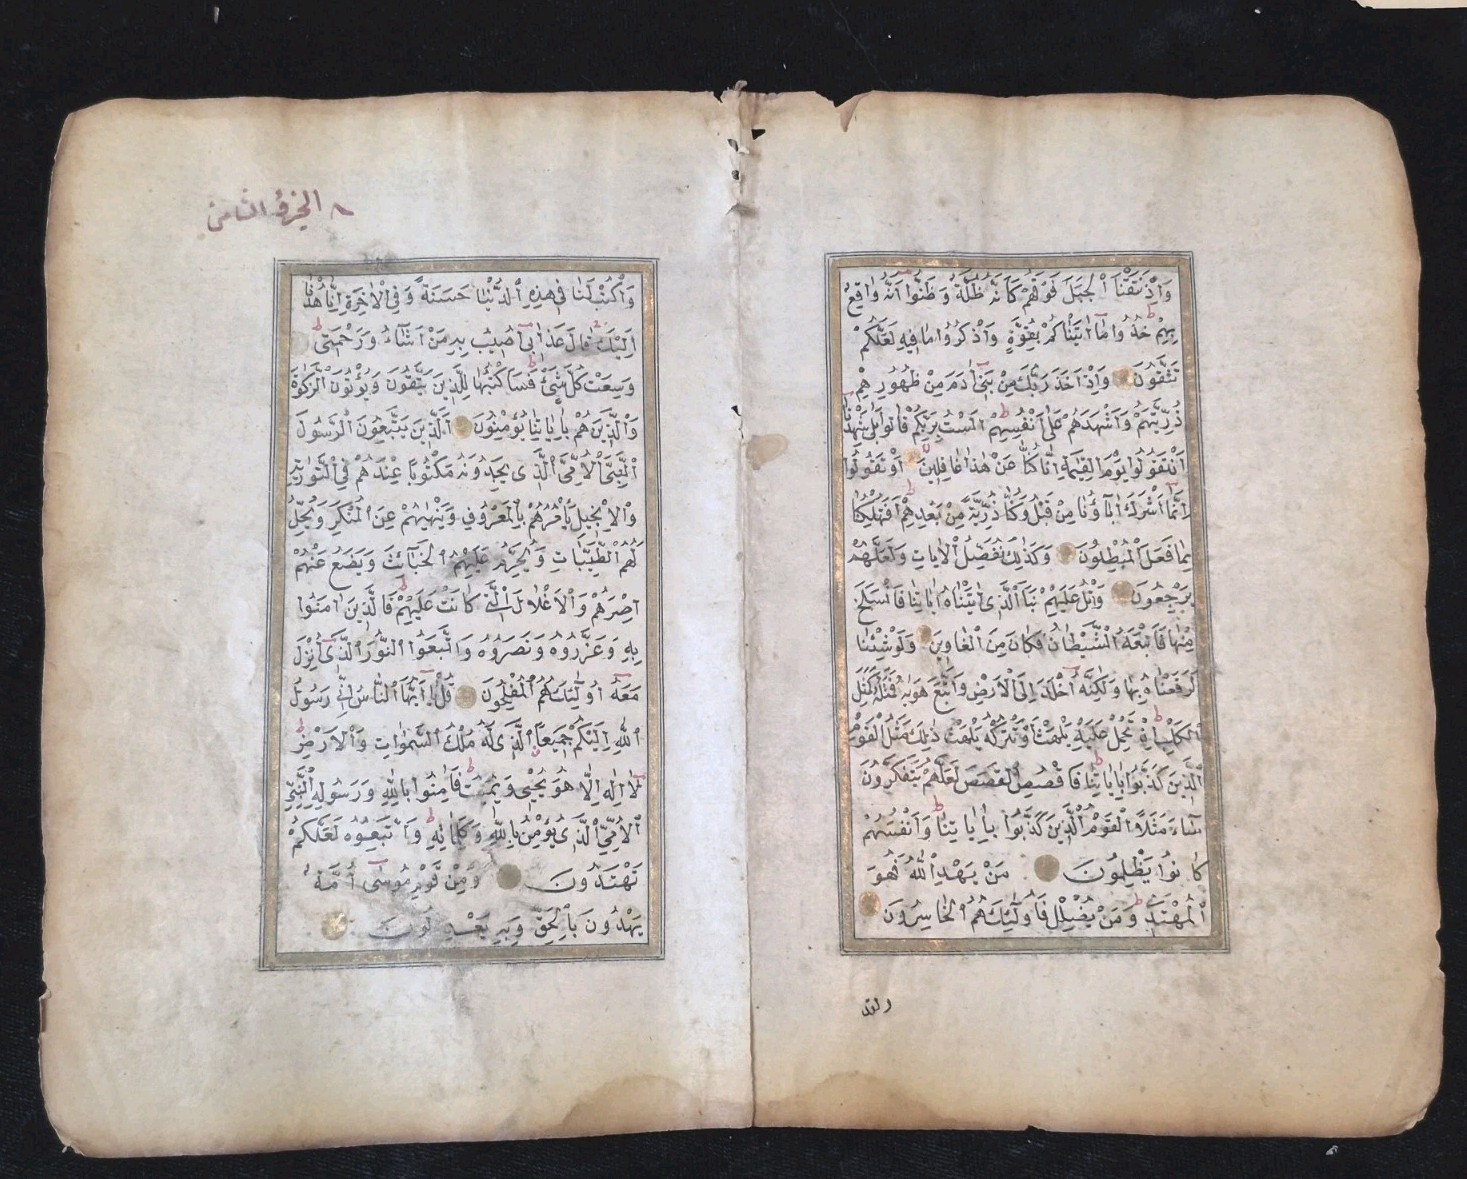 وَاِذْ نَتَقْنَا ٱلْجَبَلَ فَوْقَهُمْ كَاَنَّهُ ظُلَّةٌ وَظَنُّوا اَنَّهُ وَاقِعٌ
بِهِمْ خُذُوا مَا اٰتَيْنَاكُمْ بِقُوَّةٍ وَاذْكُرُوا مَا فِيهِ لَعَلَّكُمْ
تَتَّقُونَ وَاِذْ اَخَذَ رَبُّكَ مِنْ بَنِٓى اٰدَمَ مِنْ ظُهُورِهِمْ
ذُرِّيَّتَهُمْ وَاَشْهَدَهُمْ عَلٰٓى اَنْفُسِهِمْ اَلَسْتُ بِرَبِّكُمْ قَالُوا بَلٰى شَهِدْنَا
اَنْ تَقُولُوا يَوْمَ الْقِيٰمَةِ اِنَّا كُنَّا عَنْ هٰذَا غَافِلِينَ اَوْ تَقُولُوا
اِنَّمَٓا اَشْرَكَ اٰبَٓاؤُنَا مِنْ قَبْلُ وَكُنَّا ذُرِّيَّةً مِنْ بَعْدِهِمْ اَفَتُهْلِكُنَا
بِمَا فَعَلَ ٱلْمُبْطِلُونَ وَكَذٰلِكَ نُفَصِّلُ ٱلْاٰيَاتِ وَلَعَلَّهُمْ
يَرْجِعُونَ وَاتْلُ عَلَيْهِمْ نَبَاَ ٱلَّذِٓى اٰتَيْنَاهُ اٰيَاتِنَا فَانْسَلَخَ
مِنْهَا فَاَتْبَعَهُ ٱلشَّيْطَانُ فَكَانَ مِنَ ٱلْغَاوِينَ وَلَوْ شِئْنَا
لَرَفَعْنَاهُ بِهَا وَلٰكِنَّهُٓ اَخْلَدَ اِلَى ٱلْاَرْضِ وَاتَّبَعَ هَوٰيهُ فَمَثَلُهُ كَمَثَلِ
ٱلْكَلْبِ اِنْ تَحْمِلْ عَلَيْهِ يَلْهَثْ اَوْ تَتْرُكْهُ يَلْهَثْ ذٰلِكَ مَثَلُ ٱلْقَوْمِ
ٱلَّذِينَ كَذَّبُوا بِاٰيَاتِنَا فَاقْصُصِ ٱلْقَصَصَ لَعَلَّهُمْ يَتَفَكَّرُونَ
سَٓاءَ مَثَلًا ٱلْقَوْمُ ٱلَّذِينَ كَذَّبُوا بِاٰيَاتِنَا وَاَنْفُسَهُمْ
كَانُوا يَظْلِمُونَ مَنْ يَهْدِ ٱللّٰهُ فَهُوَ
ٱلْمُهْتَدِى وَمَنْ يُضْلِلْ فَاُولٰٓئِكَ هُمُ ٱلْخَاسِرُونَ
ولقد
٨ الجزؤ الثامن
وَاكْتُبْ لَنَا فِى هٰذِهِ ٱلدُّنْيَا حَسَنَةً وَفِى ٱلْاٰخِرَةِ اِنَّا هُدْنَٓا
اِلَيْكَ قَالَ عَذَابِٓى اُصِيبُ بِهِ مَنْ اَشَٓاءُ وَرَحْمَتِى
وَسِعَتْ كُلَّ شَىْءٍ فَسَاَكْتُبُهَا لِلَّذِينَ يَتَّقُونَ وَيُؤْتُونَ ٱلزَّكٰوةَ
وَٱلَّذِينَ هُمْ بِاٰيَاتِنَا يُؤْمِنُونَ اَلَّذِينَ يَتَّبِعُونَ ٱلرَّسُولَ
ٱلنَّبِىَّ ٱلْاُمِّىَّ ٱلَّذِى يَجِدُونَهُ مَكْتُوبًا عِنْدَهُمْ فِى ٱلتَّوْرٰيةِ
وَٱلْاِنْجِيلِ يَاْمُرُهُمْ بِٱلْمَعْرُوفِ وَيَنْهٰيهُمْ عَنِ ٱلْمُنْكَرِ وَيُحِلُّ
لَهُمُ ٱلطَّيِّبَاتِ وَيُحَرِّمُ عَلَيْهِمُ ٱلْخَبَٓائِثَ وَيَضَعُ عَنْهُمْ
اِصْرَهُمْ وَٱلْاَغْلَالَ ٱلَّتِى كَانَتْ عَلَيْهِمْ فَالَّذِينَ اٰمَنُوا
بِهِ وَعَزَّرُوهُ وَنَصَرُوهُ وَاتَّبَعُوا ٱلنُّورَ ٱلَّذِٓى اُنْزِلَ
مَعَهُٓ اُولٰٓئِكَ هُمُ ٱلْمُفْلِحُونَ قُلْ يَٓا اَيُّهَا ٱلنَّاسُ اِنِّى رَسُولُ
ٱللّٰهِ اِلَيْكُمْ جَمِيعًا ٱلَّذِى لَهُ مُلْكُ ٱلسَّمٰوَاتِ وَٱلْاَرْضِ
لَٓا اِلٰهَ اِلَّا هُوَ يُحْيِى وَيُمِيتُ فَاٰمِنُوا بِاللّٰهِ وَرَسُولِهِ ٱلنَّبِىِّ
ٱلْاُمِّىِّ ٱلَّذِى يُؤْمِنُ بِاللّٰهِ وَكَلِمَاتِهِ وَاتَّبِعُوهُ لَعَلَّكُمْ
تَهْتَدُونَ وَمِنْ قَوْمِ مُوسٰٓى اُمَّةٌ
يَهْدُونَ بِٱلْحَقِّ وَبِهِ يَعْدِلُونَ